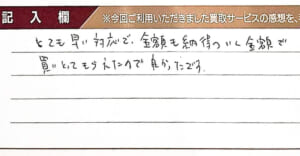 記入欄 ※今回ご利用いただきました買取サービスの感想を、
とても早い対応で、金額も納得のいく金額で
買いとってもらえたので良かったです。